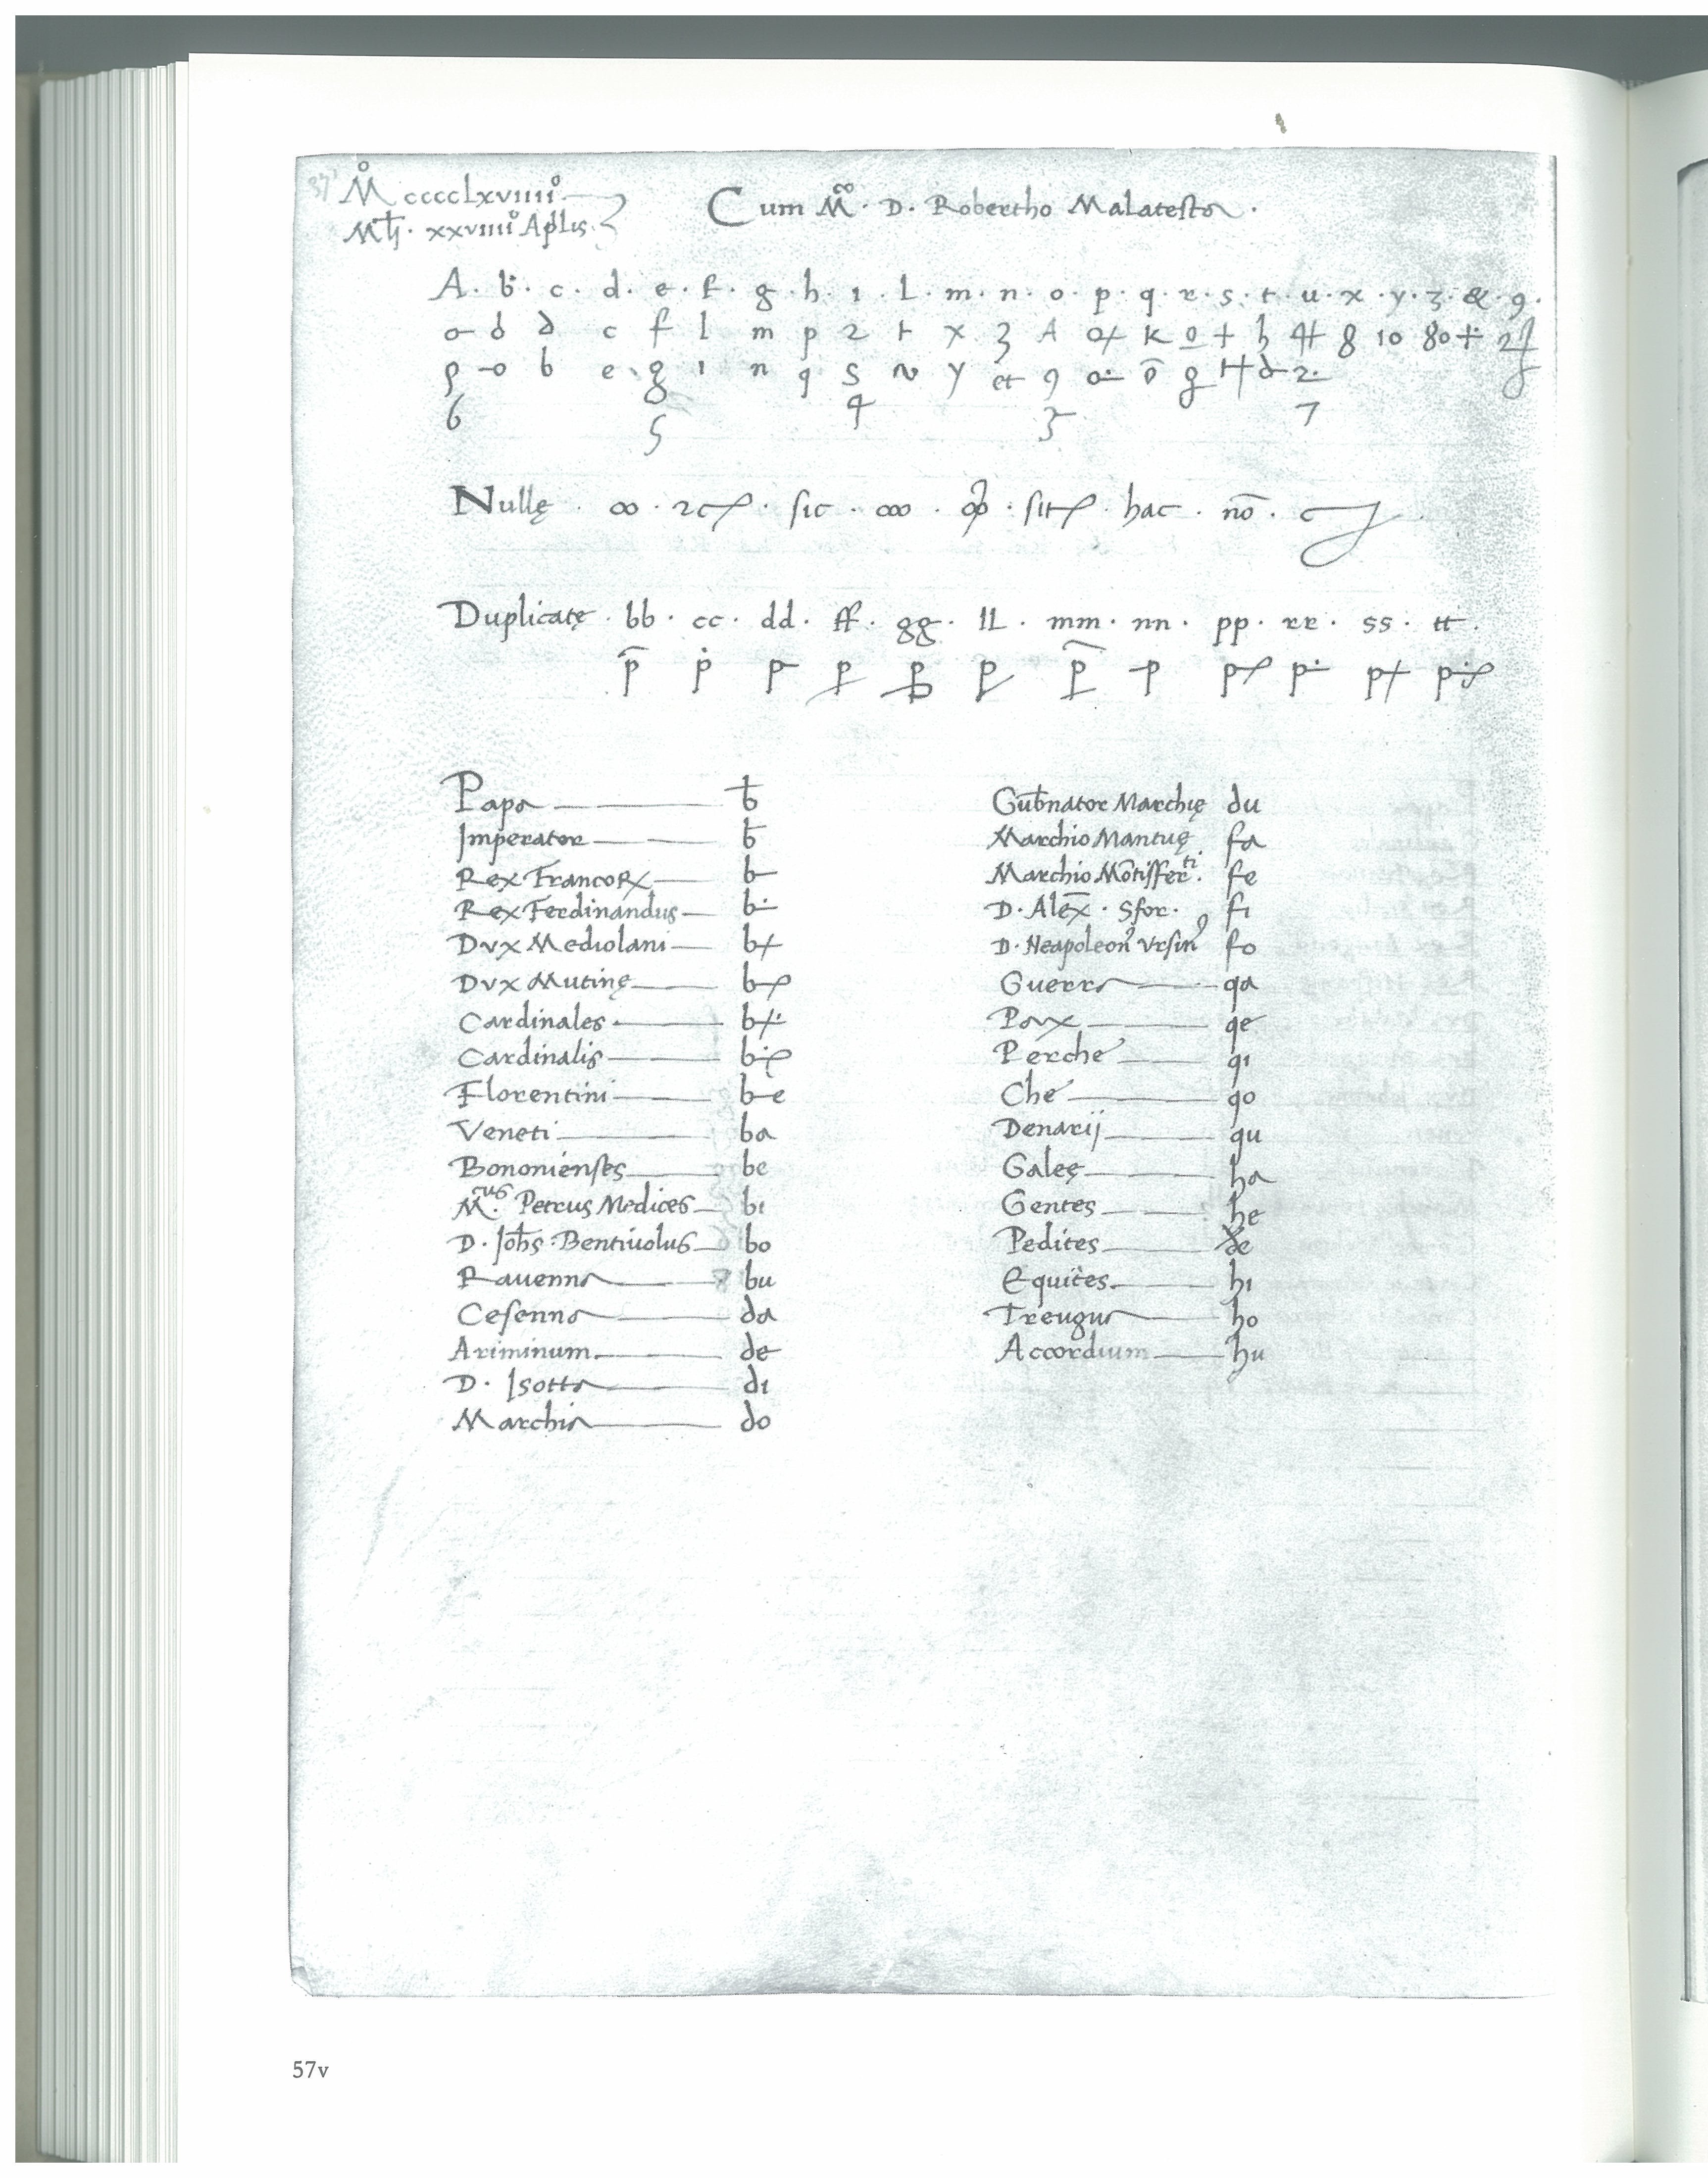 M° cccclxviiii°
Mtj. xxviiii° Aplis
Cum M.co D. Robertho Malatesta.
A. b. c. d. e. f. g. h. i. l. m. n. o. p. q. r. s. t. u. x. y. z. &. 9.
c f l m p 2 t x 3 A k o + h 8 10 80
b e g i n q s y et 9 g 2
6 5 4 3 7
Nullę. ∞. sic. hac. nō.
Duplicatę. bb. cc. dd. ff. gg. ll. mm. nn. pp. rr. ss. tt.
p̄ ṗ p p p p p p p p p p
Papa
Imperator
Rex Francoꝝ
Rex Ferdinandus
Dvx Mediolani
Dvx Mutinę
Cardinales
Cardinalis
Florentini be
Veneti ba
Bononienses be
M.cus Petrus Medices bi
D. Johs. Bentiuolus bo
Rauenna bu
Cesenna da
Ariminum de
D. Isotta di
Marchia do
Gubnator Marchię du
Marchio Mantuę fa
Marchio Mōtisfer.ti fe
D. Alex̄. Sfor. fi
D. Neapoleon9 Vrsin9 fo
Guerra qa
Pax qe
Perche qi
Che qo
Denarij qu
Galeę ha
Gentes he
Pedites de
Equites hi
Treugua ho
Accordium hu
57v